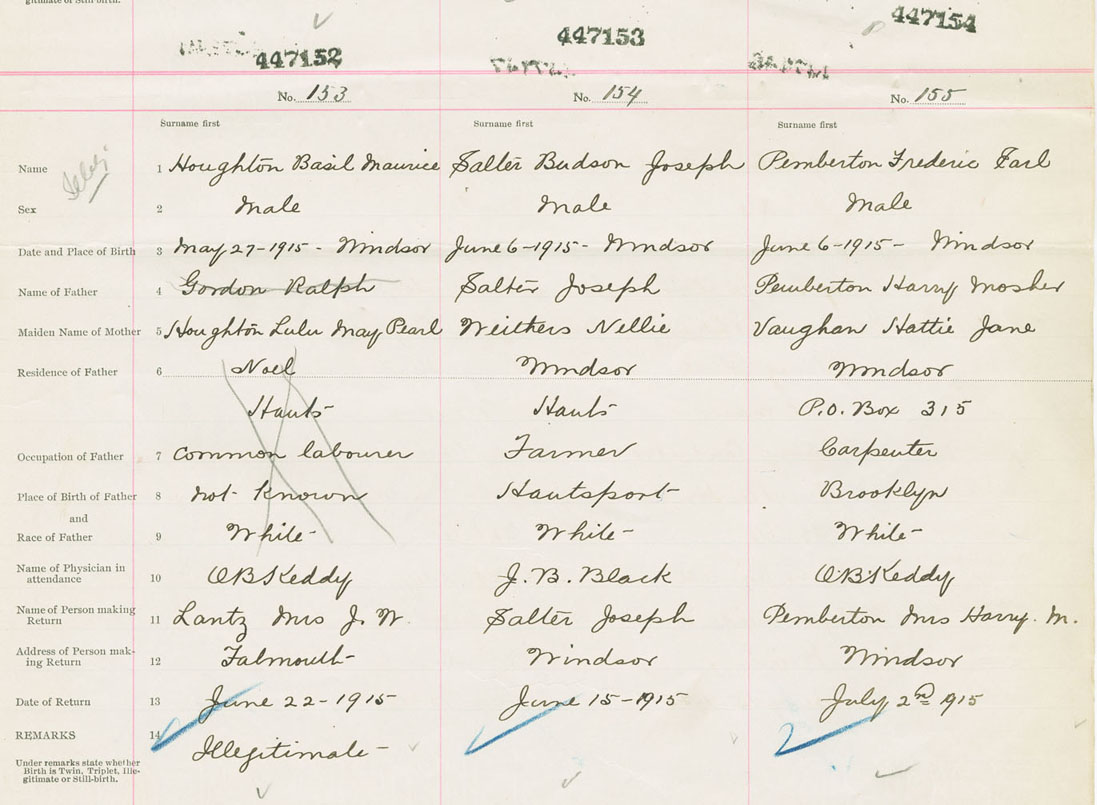 gitimate or Still-birth.
447152 447153 447154
No. 153 No. 154 No. 155
Surname first Surname first Surname first
Name 1 Houghton Basil Maurice Salter Budson Joseph Pemberton Frederic Earl
Sex 2 Male Male Male
Date and Place of Birth 3 May 27-1915 - Windsor June 6-1915 - Windsor June 6-1915 - Windsor
Name of Father 4 Gordon Ralph Salter Joseph Pemberton Harry Mosher
Maiden Name of Mother 5 Houghton Lulu May Pearl Weithers Nellie Vaughan Hattie Jane
Residence of Father 6 Noel Windsor Windsor
Hants Hants P.O. Box 315
Occupation of Father 7 Common labourer Farmer Carpenter
Place of Birth of Father 8 not known Hantsport Brooklyn
and
Race of Father 9 White White White
Name of Physician in
attendance 10 O B Keddy J. B. Black O B Keddy
Name of Person making
Return 11 Lantz Mrs J. W. Salter Joseph Pemberton Mrs Harry. M.
Address of Person mak-
ing Return 12 Falmouth Windsor Windsor
Date of Return 13 June 22-1915 June 15-1915 July 2nd 1915
REMARKS 14 Illegitimate
Under remarks state whether
Birth is Twin, Triplet, Ille-
gitimate or Still-birth.